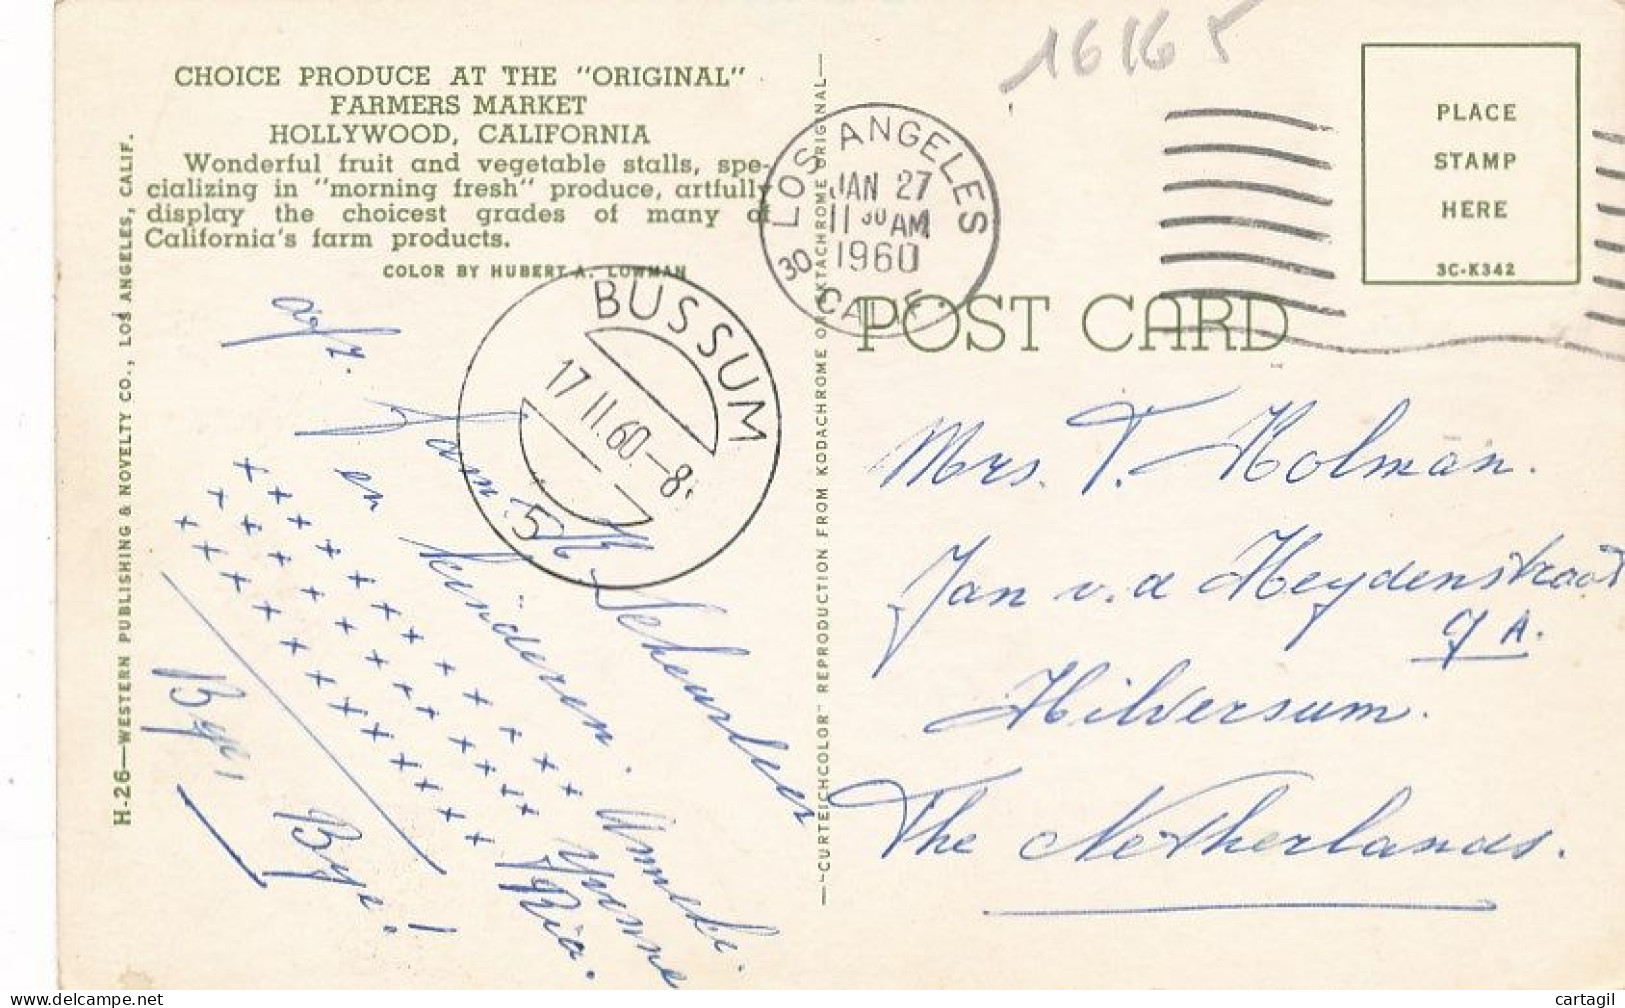 16165
CHOICE PRODUCE AT THE "ORIGINAL"
FARMERS MARKET
HOLLYWOOD, CALIFORNIA
Wonderful fruit and vegetable stalls, spe-
cializing in "morning fresh" produce, artfully
display the choicest grades of many of
California's farm products.
COLOR BY HUBERT A. LOWMAN
H-26—WESTERN PUBLISHING & NOVELTY CO., LOS ANGELES, CALIF.
"CURTEICHCOLOR" REPRODUCTION FROM KODACHROME OR EKTACHROME ORIGINAL
LOS ANGELES
JAN 27
11 30 AM
1960
30 CALIF.
PLACE
STAMP
HERE
3C-K342
POST CARD
BUSSUM
17.II.60.–8
5
afz.
Fam. Scheurleer
en kinderen.
Yvonne
Ria.
Bye!
Bye!
Mrs. T. Holman.
Jan v.d Heydenstraat
9 A.
Hilversum.
The Netherlands.
cartagil